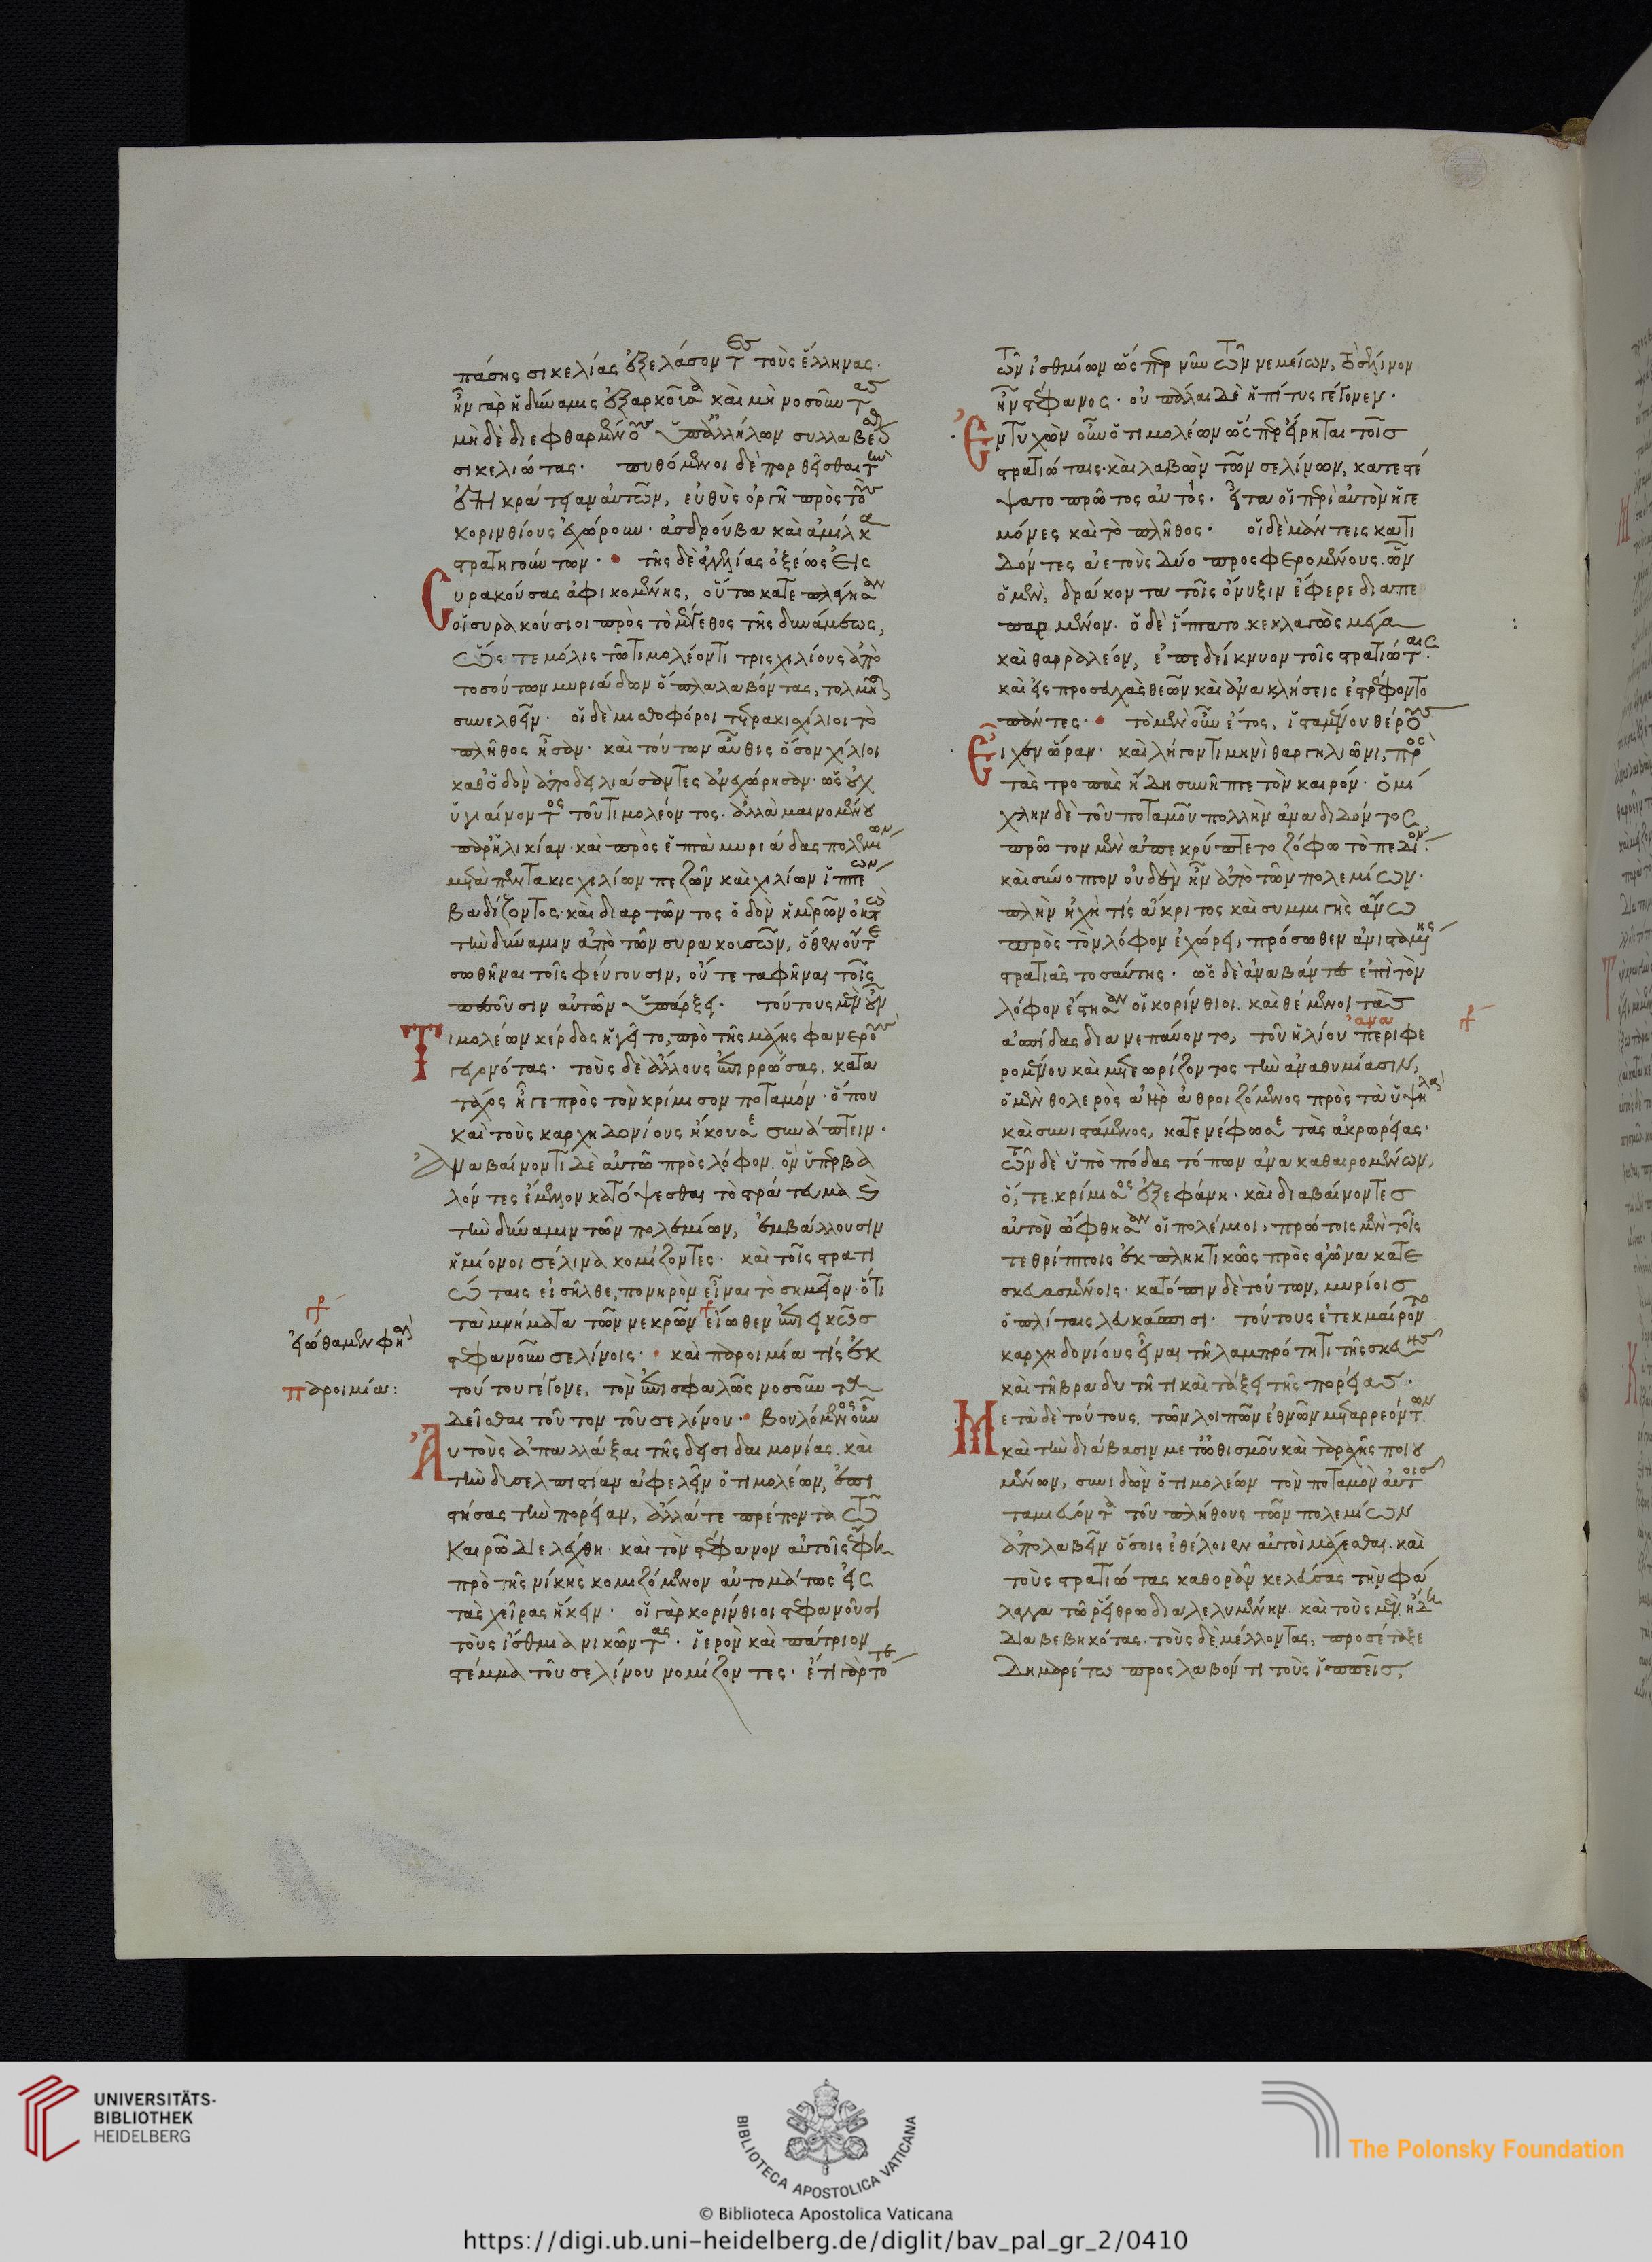 πάσης σικελίας ἐξελάσοντες τοὺς ἕλληνας.
ἦν γὰρ ἡ δύναμις ἐξαρκοῦσα καὶ μὴ νοσοῦντας
μὴ δὲ διεφθαρμένους ὑπ' ἀλλήλων συλλαβεῖν
σικελιώτας. πυθόμενοι δὲ πορθεῖσθαι τὴν
ἐπικράτειαν αὐτῶν, εὐθὺς ὀργῇ πρὸς τοὺς
κορινθίους ἐχώρουν. ἀσδρούβα καὶ ἀμίλκα
στρατηγούντων. τῆς δὲ ἀγγελίας ὀξέως εἰς
Συρακούσας ἀφικομένης, οὕτω κατεπλάγησαν
οἱ συρακούσιοι πρὸς τὸ μέγεθος τῆς δυνάμεως,
ὥς τε μόλις τῶ τιμολέοντι τρισχιλίους ἀπὸ
τοσούτων μυριάδων ὅπλα λαβόντας, τολμῆσαι
συνελθεῖν. οἱ δὲ μισθοφόροι τετρακισχίλιοι τὸ
πλῆθος ἦσαν. καὶ τούτων αὖθις ὅσον χίλιοι
καθ' ὁδὸν ἀποδειλιάσαντες ἀνεχώρησαν. ὡς οὐχ
ὑγιαίνοντος τοῦ τιμολέοντος. ἀλλὰ μαινομένου
παρ' ἡλικίαν. καὶ πρὸς ἑπτὰ μυριάδας πολεμίων
μετὰ πεντακισχιλίων πεζῶν καὶ χιλίων ἱππέων
βαδίζοντος. καὶ διαρτῶντος ὁδὸν ἡμερῶν ὀκτὼ
τὴν δύναμιν ἀπὸ τῶν συρακουσῶν, ὅθεν οὔτε
σωθῆναι τοῖς φεύγουσιν, οὔτε ταφῆναι τοῖς
πεσοῦσιν αὐτῶν ὑπάρξει. τούτους μὲν οὖν
Τιμολέων κέρδος ἡγεῖτο, πρὸ τῆς μάχης φανεροὺς
γεγονότας. τοὺς δὲ ἄλλους ἐπιρρώσας, κατὰ
τάχος ἦγε πρὸς τὸν κρίμισον ποταμόν. ὅπου
καὶ τοὺς καρχηδονίους ἤκουσε συνάπτειν.
Ἀναβαίνοντι δὲ αὐτῶ πρὸς λόφον. ὃν ὑπερβα
λόντες ἔμελλον κατόψεσθαι τὸ στράτευμα καὶ
τὴν δύναμιν τῶν πολεμίων, ἐμβάλλουσιν
ἡμίονοι σέλινα κομίζοντες. καὶ τοῖς στρατι
ώταις εἰσῆλθε, πονηρὸν εἶναι τὸ σημεῖον. ὅτι
τὰ μνήματα τῶν νεκρῶν εἴωθεν ἐπιεικῶς
στεφανοῦν σελίνοις. καὶ παροιμία τίς ἐκ
τούτου γέγονε, τὸν ἐπισφαλῶς νοσοῦντα
δεῖσθαι τοῦτον τοῦ σελίνου. Βουλόμενος οὖν
Αὐτοὺς ἀπαλλάξαι τῆς δεισιδαιμονίας. καὶ
τὴν δυσελπιστίαν ἀφελεῖν ὁ τιμολέων, ἐπι
στήσας τὴν πορείαν, ἄλλά τε πρέποντα τῶ
καιρῶ διελέχθη. καὶ τὸν στέφανον αὐτοῖς ἔφη
πρὸ τῆς νίκης κομιζόμενον αὐτομάτως εἰς
τὰς χεῖρας ἥκειν. οἱ γὰρ κορίνθιοι στεφανοῦσι
τοὺς ἴσθμια νικῶντας. ἱερὸν καὶ πάτριον
στέμμα τοῦ σελίνου νομίζοντες. ἔτι γὰρ τότε
εἰώθαμεν φησὶν
παροιμία:
τῶν ἰσθμίων ὥς περ νῦν τῶν νεμείων, τὸ σέλινον
ἦν στέφανος. οὐ πάλαι δὲ ἡ πίτυς γέγονεν.
Ἐντυχὼν οὖν ὁ τιμολέων ὥς περ εἴρηται τοῖς
στρατιώταις. καὶ λαβὼν τῶν σελίνων, κατεστέ
ψατο πρῶτος αὐτός. εἶτα οἱ περὶ αὐτὸν ἡγε
μόνες καὶ τὸ πλῆθος. οἱ δὲ μάντεις κατι
δόντες ἀετοὺς δύο προσφερομένους. ὧν
ὁ μὲν, δράκοντα τοῖς ὄνυξιν ἔφερε διαπε
παρμένον. ὁ δὲ ἵπτατο κεκλαγὼς μέγα
καὶ θαρραλέον, ἐπεδείκνυον τοῖς στρατιώταις.
καὶ εἰς προσευχὰς θεῶν καὶ ἀνακλήσεις ἐτρέποντο
πάντες. τὸ μὲν οὖν ἔτος, ἱσταμένου θέρους
Εἶχεν ὥραν. καὶ λήγοντι μηνὶ θαργηλιῶνι, πρὸς
τὰς τροπὰς ἤδη συνῆπτε τὸν καιρόν. ὁμί
χλην δὲ τοῦ ποταμοῦ πολλὴν ἀναδιδόντος
πρῶτον μὲν ἀπεκρύπτετο ζόφω τὸ πεδίον.
καὶ σύνοπτον οὐδὲν ἦν ἀπὸ τῶν πολεμίων.
πλὴν ἠχή τίς ἄκριτος καὶ συμμιγὴς ἄνω
πρὸς τὸν λόφον ἐχώρει, πρόσωθεν ἀνισταμένης
στρατιᾶς τοσαύτης. ὡς δὲ ἀναβάντες ἐπὶ τὸν
λόφον ἔστησαν οἱ κορίνθιοι. καὶ θέμενοι τὰς
ἀσπίδας διανεπαύοντο, τοῦ ἡλίου περιφε
ἀνα
ρομένου καὶ μετεωρίζοντος τὴν ἀναθυμίασιν,
ὁ μὲν θολερὸς ἀὴρ ἀθροιζόμενος πρὸς τὰ ὑψηλὰ
καὶ συνιστάμενος, κατενέφωσε τὰς ἀκρωρείας.
τῶν δὲ ὑπὸ πόδας τόπων ἀνακαθαιρομένων,
ὅ, τε κρίμισος ἐξεφάνη. καὶ διαβαίνοντες
αὐτὸν ὤφθησαν οἱ πολέμιοι, πρώτοις μὲν τοῖς
τεθρίπποις ἐκπληκτικῶς πρὸς ἀγῶνα κατε
σκευασμένοις. κατόπιν δὲ τούτων, μυρίοις
ὁπλίταις λευκάσπισι. τούτους ἐτεκμαίροντο
καρχηδονίους εἶναι τῆ λαμπρότητι τῆς σκευῆς
καὶ τῆ βραδυτῆτι καὶ τάξει τῆς πορείας.
Μετὰ δὲ τούτους, τῶν λοιπῶν ἐθνῶν ἐπιρρεόντων
καὶ τὴν διάβασιν μετ' ὠθισμοῦ καὶ ταραχῆς ποιου
μένων, συνιδὼν ὁ τιμολέων τὸν ποταμὸν αὐτοῖς
ταμιεύοντα τοῦ πλήθους τῶν πολεμίων
ἀπολαβεῖν ὅσοις ἐθέλοιεν αὐτοὶ μάχεσθαι. καὶ
τοὺς στρατιώτας καθορᾶν κελεύσας τὴν φά
λαγγα τῶ ῥείθρω διαλελυμένην. καὶ τοὺς μὲν ἤδη
διαβεβηκότας. τοὺς δὲ μέλλοντας, προσέταξε
Δημαρέτω προσλαβόντι τοὺς ἱππεῖς,
UNIVERSITÄTS-
BIBLIOTHEK
HEIDELBERG
BIBLIOTECA APOSTOLICA VATICANA
The Polonsky Foundation
© Biblioteca Apostolica Vaticana
https://digi.ub.uni-heidelberg.de/diglit/bav_pal_gr_2/0410